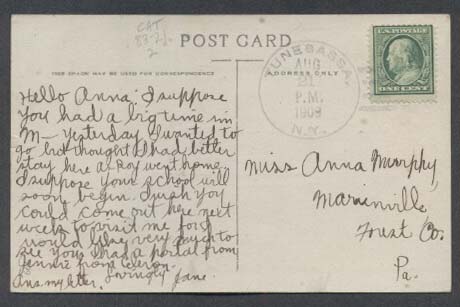 CAT
83-2/
2
POST CARD
THIS SPACE MAY BE USED FOR CORRESPONDENCE
ADDRESS ONLY
TUNESASSA.
AUG
21
P.M.
1909
N.Y.
ONE CENT
Hello Anna: I suppose
you had a big time in
M— yesterday. I wanted to
go but thought I had better
stay here as Roy went home.
I suppose your school will
soon begin. I wish you
could come out here next
week to visit me for I
would like very much to
see you. I had a postal from
Jennie from
Ans. my letter. Lovingly Jane.
Miss Anna Murphy,
Marienville,
Forest Co.
Pa.